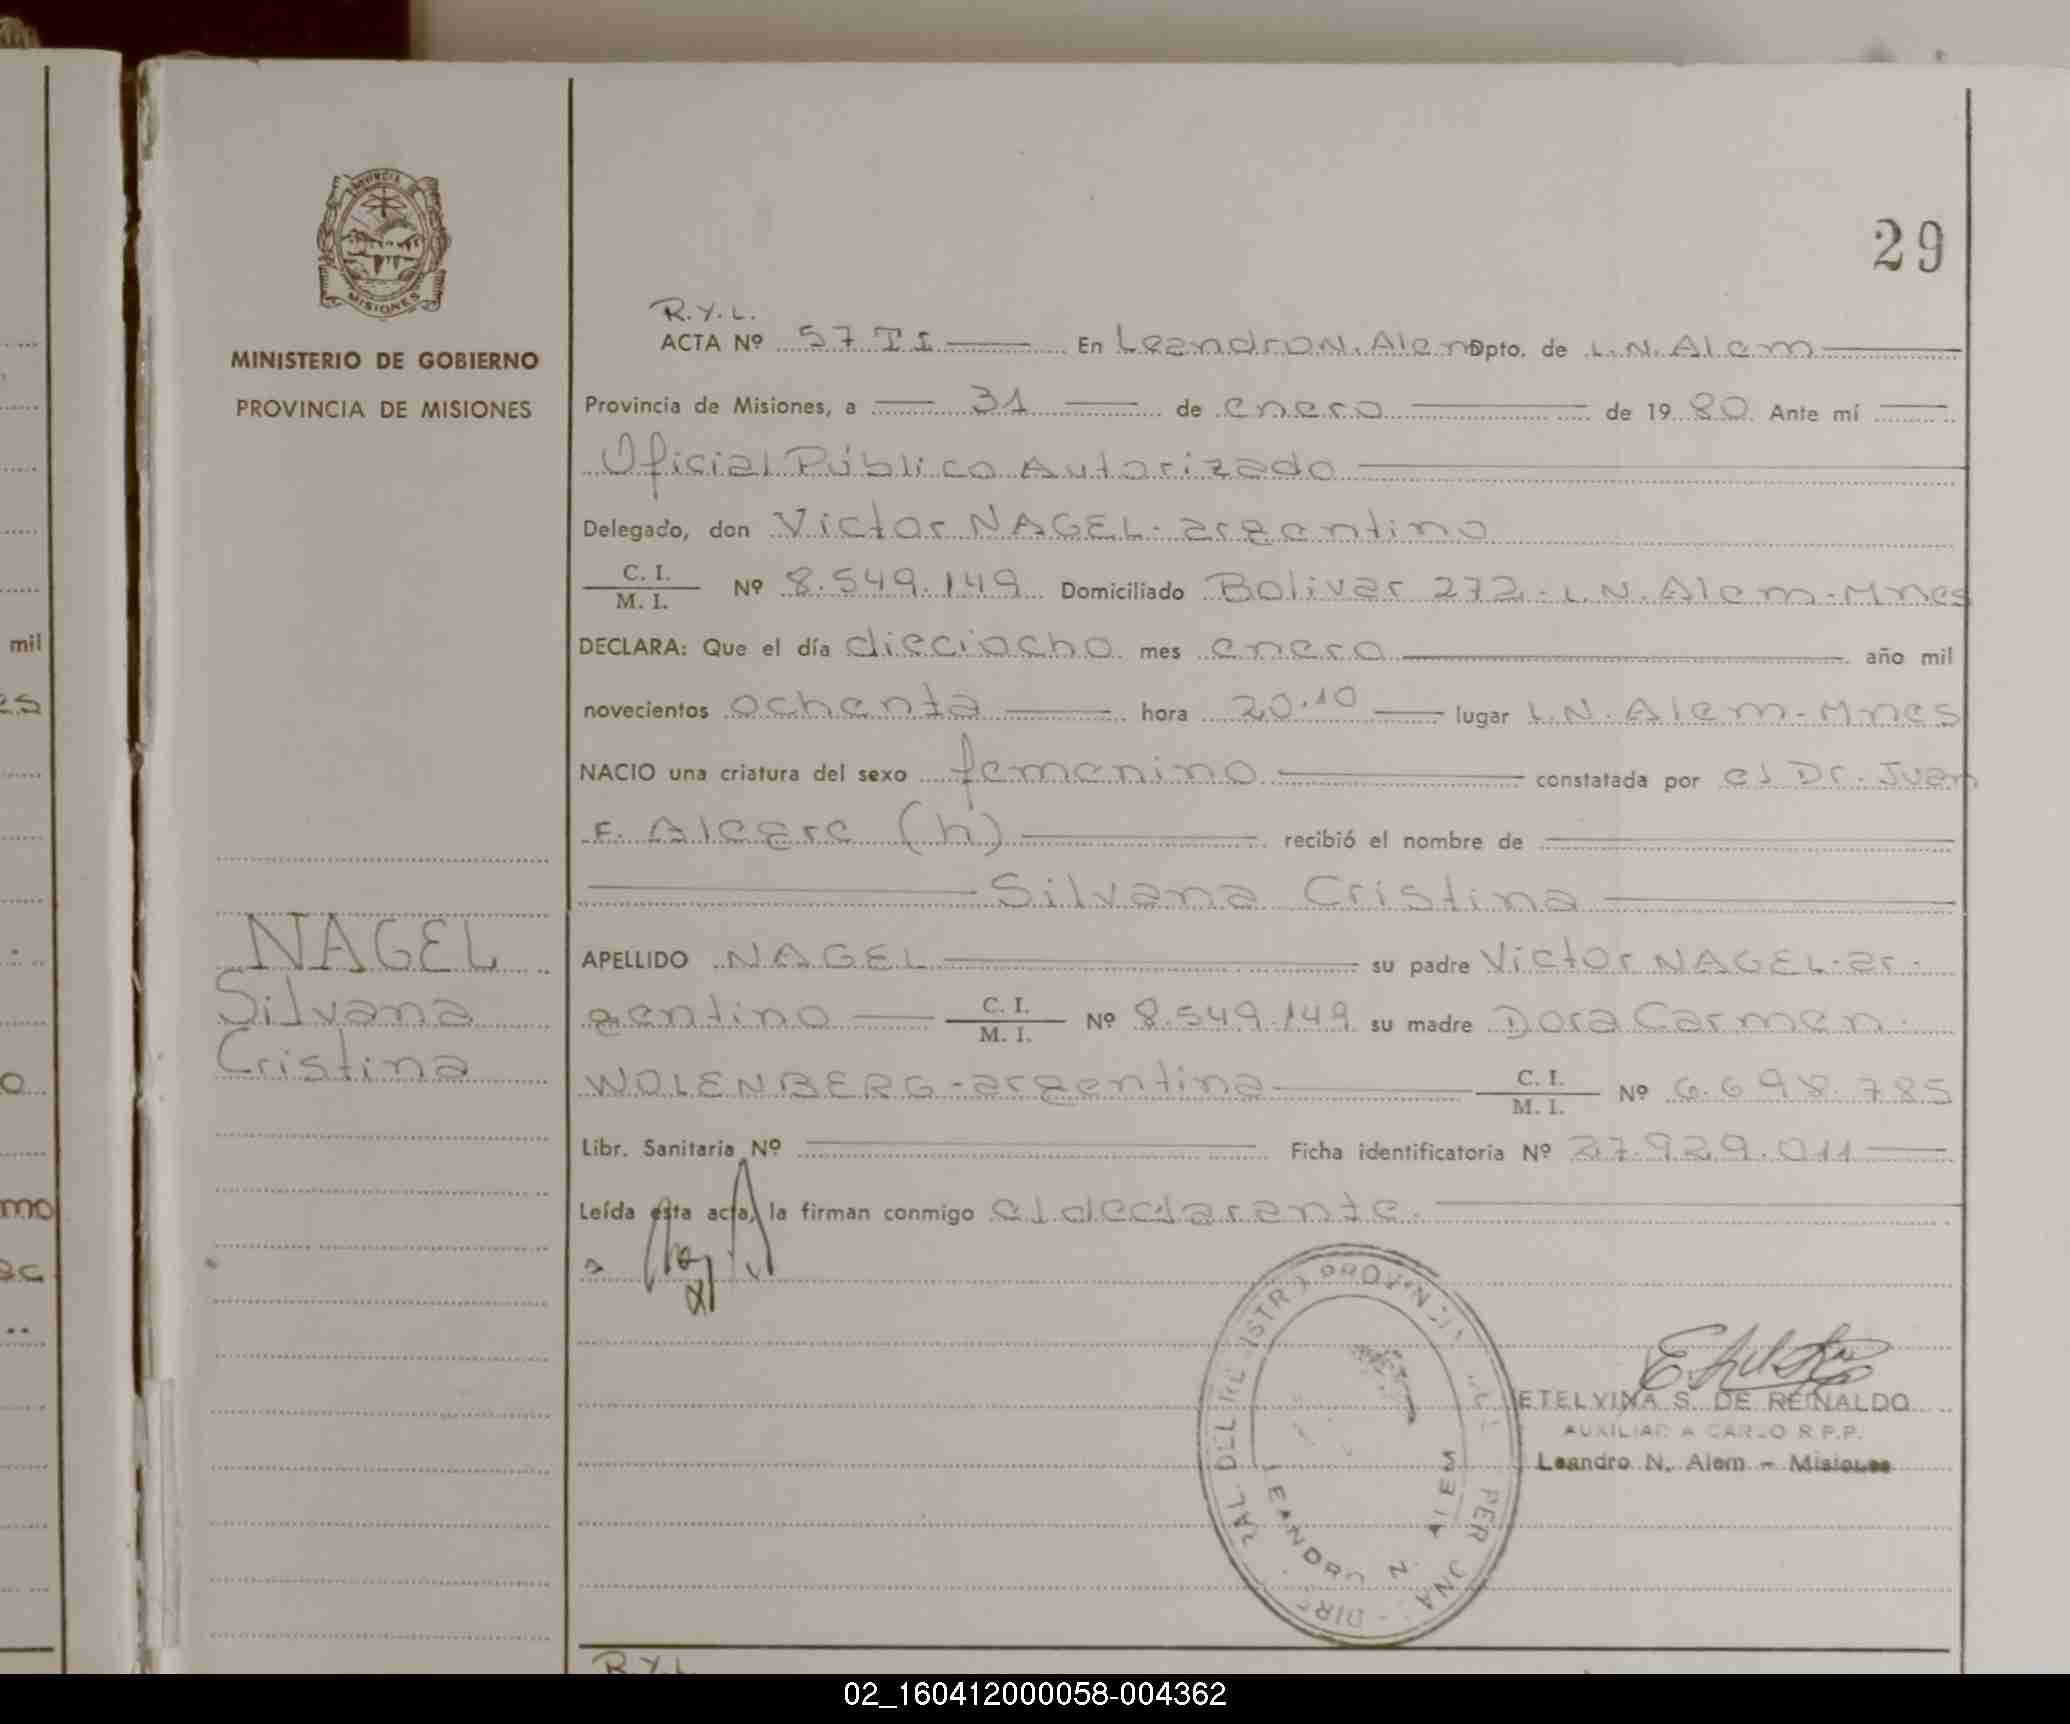 29
PROVINCIA
MISIONES
MINISTERIO DE GOBIERNO
PROVINCIA DE MISIONES
R.Y.L.
ACTA Nº 57 TI En Leandro N. Alem Dpto. de L.N. Alem
Provincia de Misiones, a 31 de enero de 1980 Ante mí
Oficial Público Autorizado
Delegado, don Victor NAGEL-argentino
C. I.
M. I. Nº 8.549.149 Domiciliado Bolivar 272-L.N. Alem-Mnes
DECLARA: Que el día dieciocho mes enero año mil
novecientos ochenta hora 20.10 lugar L.N. Alem-Mnes
NACIO una criatura del sexo femenino constatada por el Dr. Juan
F. Alegre (h) recibió el nombre de
Silvana Cristina
APELLIDO NAGEL su padre Victor NAGEL-ar-
gentino C. I.
M. I. Nº 8.549.149 su madre Dora Carmen
WOLENBERG-argentina C. I.
M. I. Nº 6.698.785
Libr. Sanitaria Nº Ficha identificatoria Nº 27.929.011
Leída esta acta, la firman conmigo el declarante.
NAGEL
Silvana
Cristina
mil
es
o
mo
LEANDRO N. ALEM
ETELVINA S. DE REINALDO
AUXILIAR A CARGO R.P.P.
Leandro N. Alem - Misiones
R.Y.L.
02_160412000058-004362